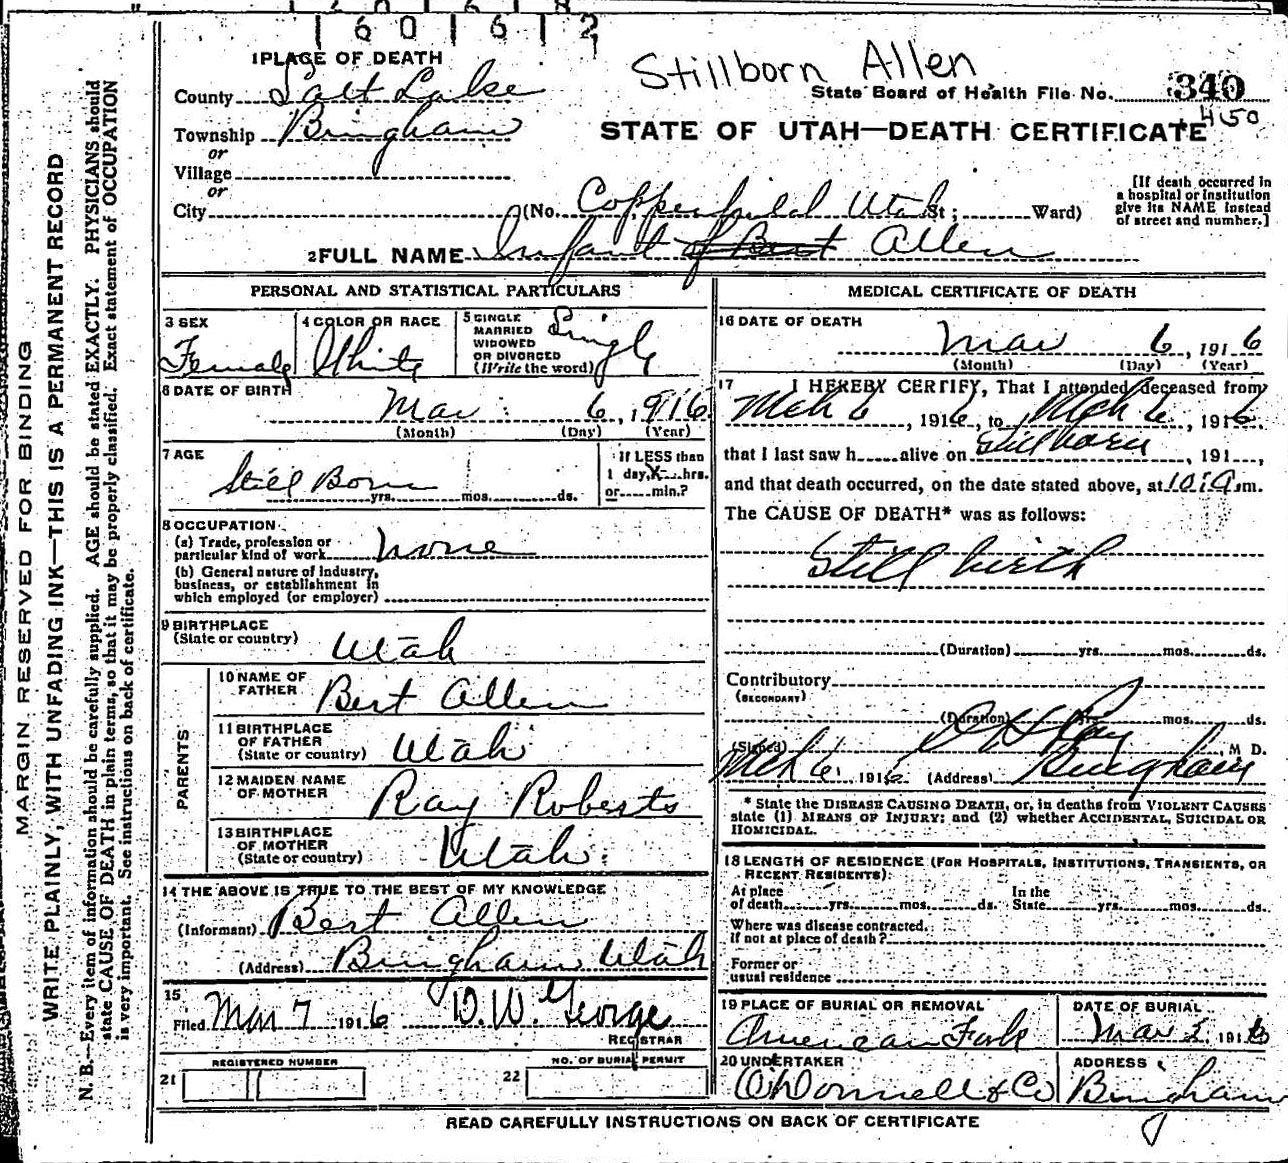 1601612
Stillborn Allen
1 PLACE OF DEATH
State Board of Health File No. 340
450
County Salt Lake
Township Bingham
or
Village
or
City
STATE OF UTAH—DEATH CERTIFICATE
(No. Copperfield Utah St; Ward)
[If death occurred in
a hospital or institution
give its NAME instead
of street and number.]
2 FULL NAME Infant of Bert Allen
PERSONAL AND STATISTICAL PARTICULARS
3 SEX
Female
4 COLOR OR RACE
White
5 SINGLE
MARRIED
WIDOWED
OR DIVORCED
(Write the word)
Single
6 DATE OF BIRTH
Mar 6, 1916
(Month) (Day) (Year)
7 AGE
Still Born
yrs. mos. ds.
If LESS than
1 day, X hrs.
or min.?
8 OCCUPATION
(a) Trade, profession or
particular kind of work none
(b) General nature of industry,
business, or establishment in
which employed (or employer)
9 BIRTHPLACE
(State or country) Utah
PARENTS
10 NAME OF
FATHER Bert Allen
11 BIRTHPLACE
OF FATHER
(State or country) Utah
12 MAIDEN NAME
OF MOTHER Ray Roberts
13 BIRTHPLACE
OF MOTHER
(State or country) Utah
14 THE ABOVE IS TRUE TO THE BEST OF MY KNOWLEDGE
(Informant) Bert Allen
(Address) Bingham Utah
15
Filed Mar 7 1916 D.W. George
REGISTRAR
REGISTERED NUMBER
21
NO. OF BURIAL PERMIT
22
MEDICAL CERTIFICATE OF DEATH
16 DATE OF DEATH
Mar 6, 1916
(Month) (Day) (Year)
17 I HEREBY CERTIFY, That I attended deceased from
Mch 6, 1916, to Mch 6, 1916.
that I last saw h alive on Stillborn, 191 ,
and that death occurred, on the date stated above, at 10:9 m.
The CAUSE OF DEATH* was as follows:
Still birth
(Duration) yrs. mos. ds.
Contributory
(SECONDARY)
(Duration) yrs. mos. ds.
(Signed) D H Ray, M D.
Mch 6, 1916 (Address) Bingham
* State the DISEASE CAUSING DEATH, or, in deaths from VIOLENT CAUSES
state (1) MEANS OF INJURY; and (2) whether ACCIDENTAL, SUICIDAL OR
HOMICIDAL.
18 LENGTH OF RESIDENCE (FOR HOSPITALS, INSTITUTIONS, TRANSIENTS, OR
RECENT RESIDENTS)
At place
of death yrs. mos. ds.
In the
State yrs. mos. ds.
Where was disease contracted,
if not at place of death?
Former or
usual residence
19 PLACE OF BURIAL OR REMOVAL
American Fork
DATE OF BURIAL
Mar 1916
20 UNDERTAKER
O'Donnell & Co
ADDRESS
Bingham
READ CAREFULLY INSTRUCTIONS ON BACK OF CERTIFICATE
MARGIN RESERVED FOR BINDING
WRITE PLAINLY, WITH UNFADING INK—THIS IS A PERMANENT RECORD
N. B.—Every item of information should be carefully supplied. AGE should be stated EXACTLY. PHYSICIANS should
state CAUSE OF DEATH in plain terms, so that it may be properly classified. Exact statement of OCCUPATION
is very important. See instructions on back of certificate.